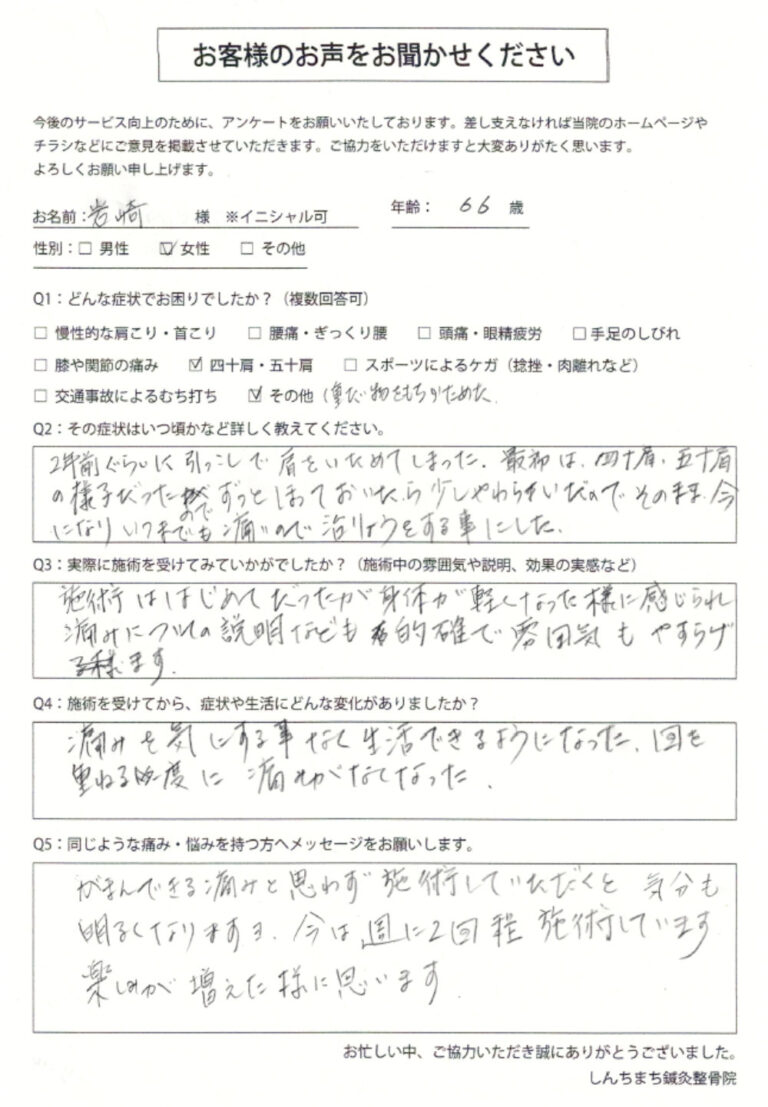 お客様のお声をお聞かせください
今後のサービス向上のために、アンケートをお願いいたしております。差し支えなければ当院のホームページや
チラシなどにご意見を掲載させていただきます。ご協力をいただけますと大変ありがたく思います。
よろしくお願い申し上げます。
お名前：岩崎 様 ※イニシャル可 年齢： 66 歳
性別：☐ 男性 ☑ 女性 ☐ その他
Q1：どんな症状でお困りでしたか？（複数回答可）
☐ 慢性的な肩こり・首こり ☐ 腰痛・ぎっくり腰 ☐ 頭痛・眼精疲労 ☐ 手足のしびれ
☐ 膝や関節の痛み ☑ 四十肩・五十肩 ☐ スポーツによるケガ（捻挫・肉離れなど）
☐ 交通事故によるむち打ち ☑ その他 (重たい物をもちかためた
Q2：その症状はいつ頃かなど詳しく教えてください。
2年前ぐらいに引っこしで肩をいためてしまった。最初は、四十肩、五十肩
の様子だったのでずっとほっておいたら少しやわらいだのでそのまま、今
になりいつまでも痛いので治りょうをする事にした。
Q3：実際に施術を受けてみていかがでしたか？（施術中の雰囲気や説明、効果の実感など）
施術ははじめてだったが身体が軽くなった様に感じられ
痛みについての説明なども的確で雰囲気もやすらげ
ます。
Q4：施術を受けてから、症状や生活にどんな変化がありましたか？
痛みを気にする事なく生活できるようになった、回を
重ねる度に痛みがなくなった。
Q5：同じような痛み・悩みを持つ方へメッセージをお願いします。
がまんできる痛みと思わず施術していただくと気分も
明るくなりますヨ、今は、週に2回程施術しています
楽しみが増えた様に思います。
お忙しい中、ご協力いただき誠にありがとうございました。
しんちまち鍼灸整骨院